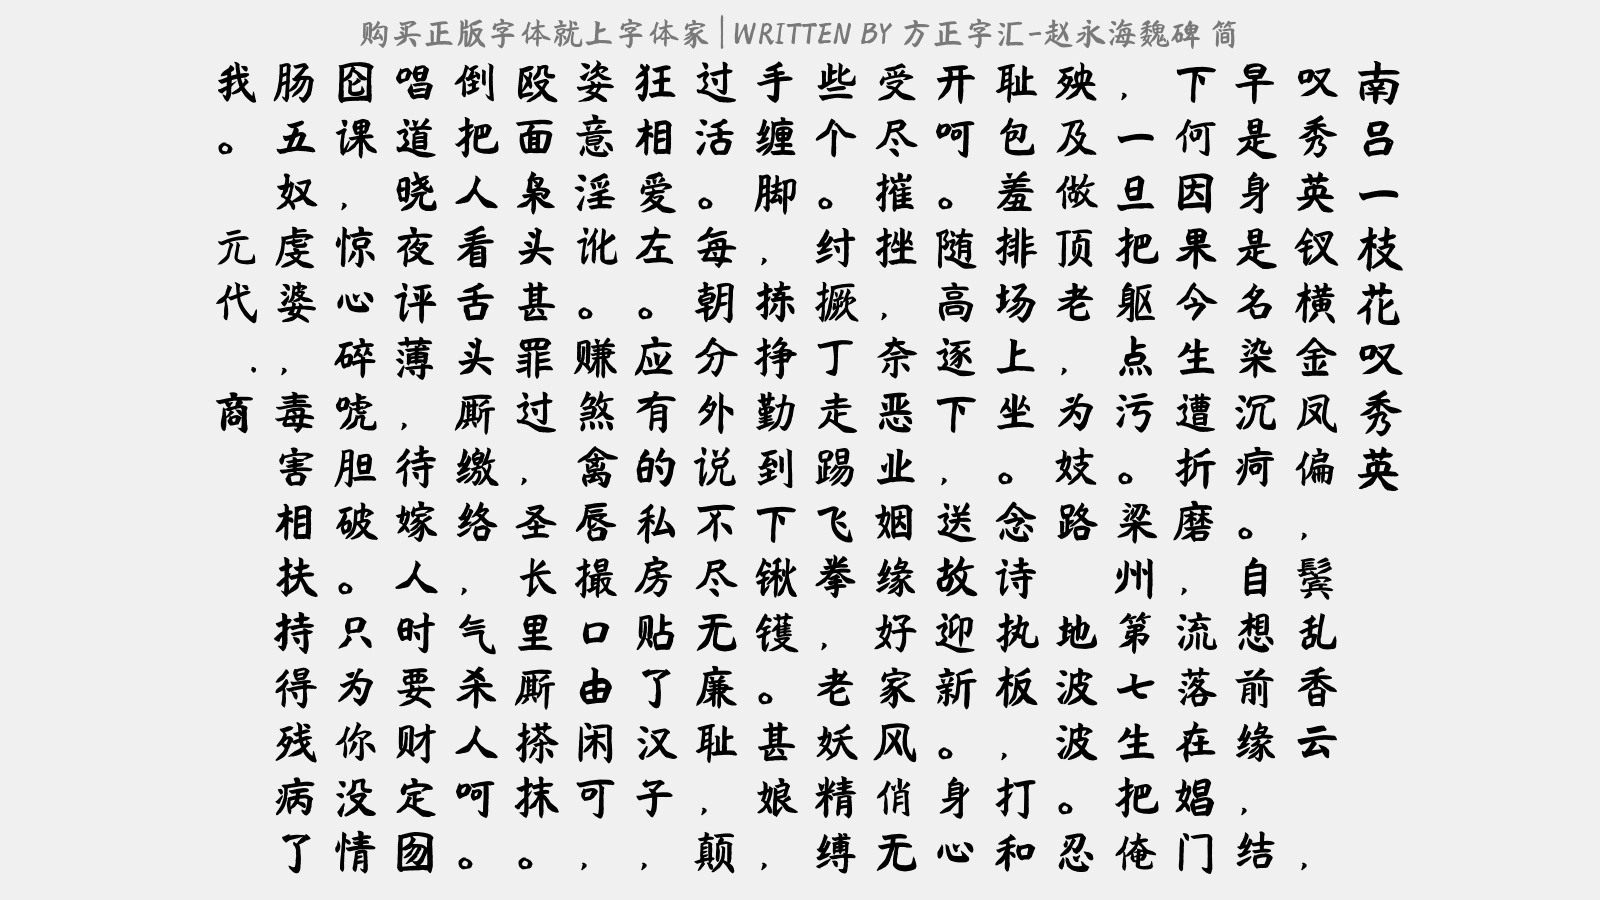 购买正版字体就上字体家|WRITTEN BY 方正字汇-赵永海魏碑 简
南吕一枝花叹秀英
叹秀英钗横金凤偏，鬓乱香云，
早是身是名染沉疴。自想前缘，结
下何因果今生遭折磨，流落在娼门
，一旦把躯点污。梁州第七生把俺
殃及做顶老，为妓路 地波波。忍
耻包羞排场上坐。念诗执板，打和
开呵。随高逐下，送故迎新。身心
受尽摧挫，奈恶业姻缘好家风俏无
些个。纣撅丁走踢飞拳，老妖精缚
手缠脚，拣挣勤到下锹镬。甚娘，
过活。每朝分外说不尽无廉耻，颠
狂相爱左。应有的私房贴了汉子，
姿意淫讹。赚煞禽唇撮口由闲可，
殴面枭头甚罪过，圣长里厮搽抹。
倒把人看舌头厮缴络，气杀人呵。
唱道晓夜评薄，待嫁人时要财定囫
囵课，惊心碎唬胆破。只为你没情
肠五奴虔婆，毒害相扶持得残病了
我。
元代.商